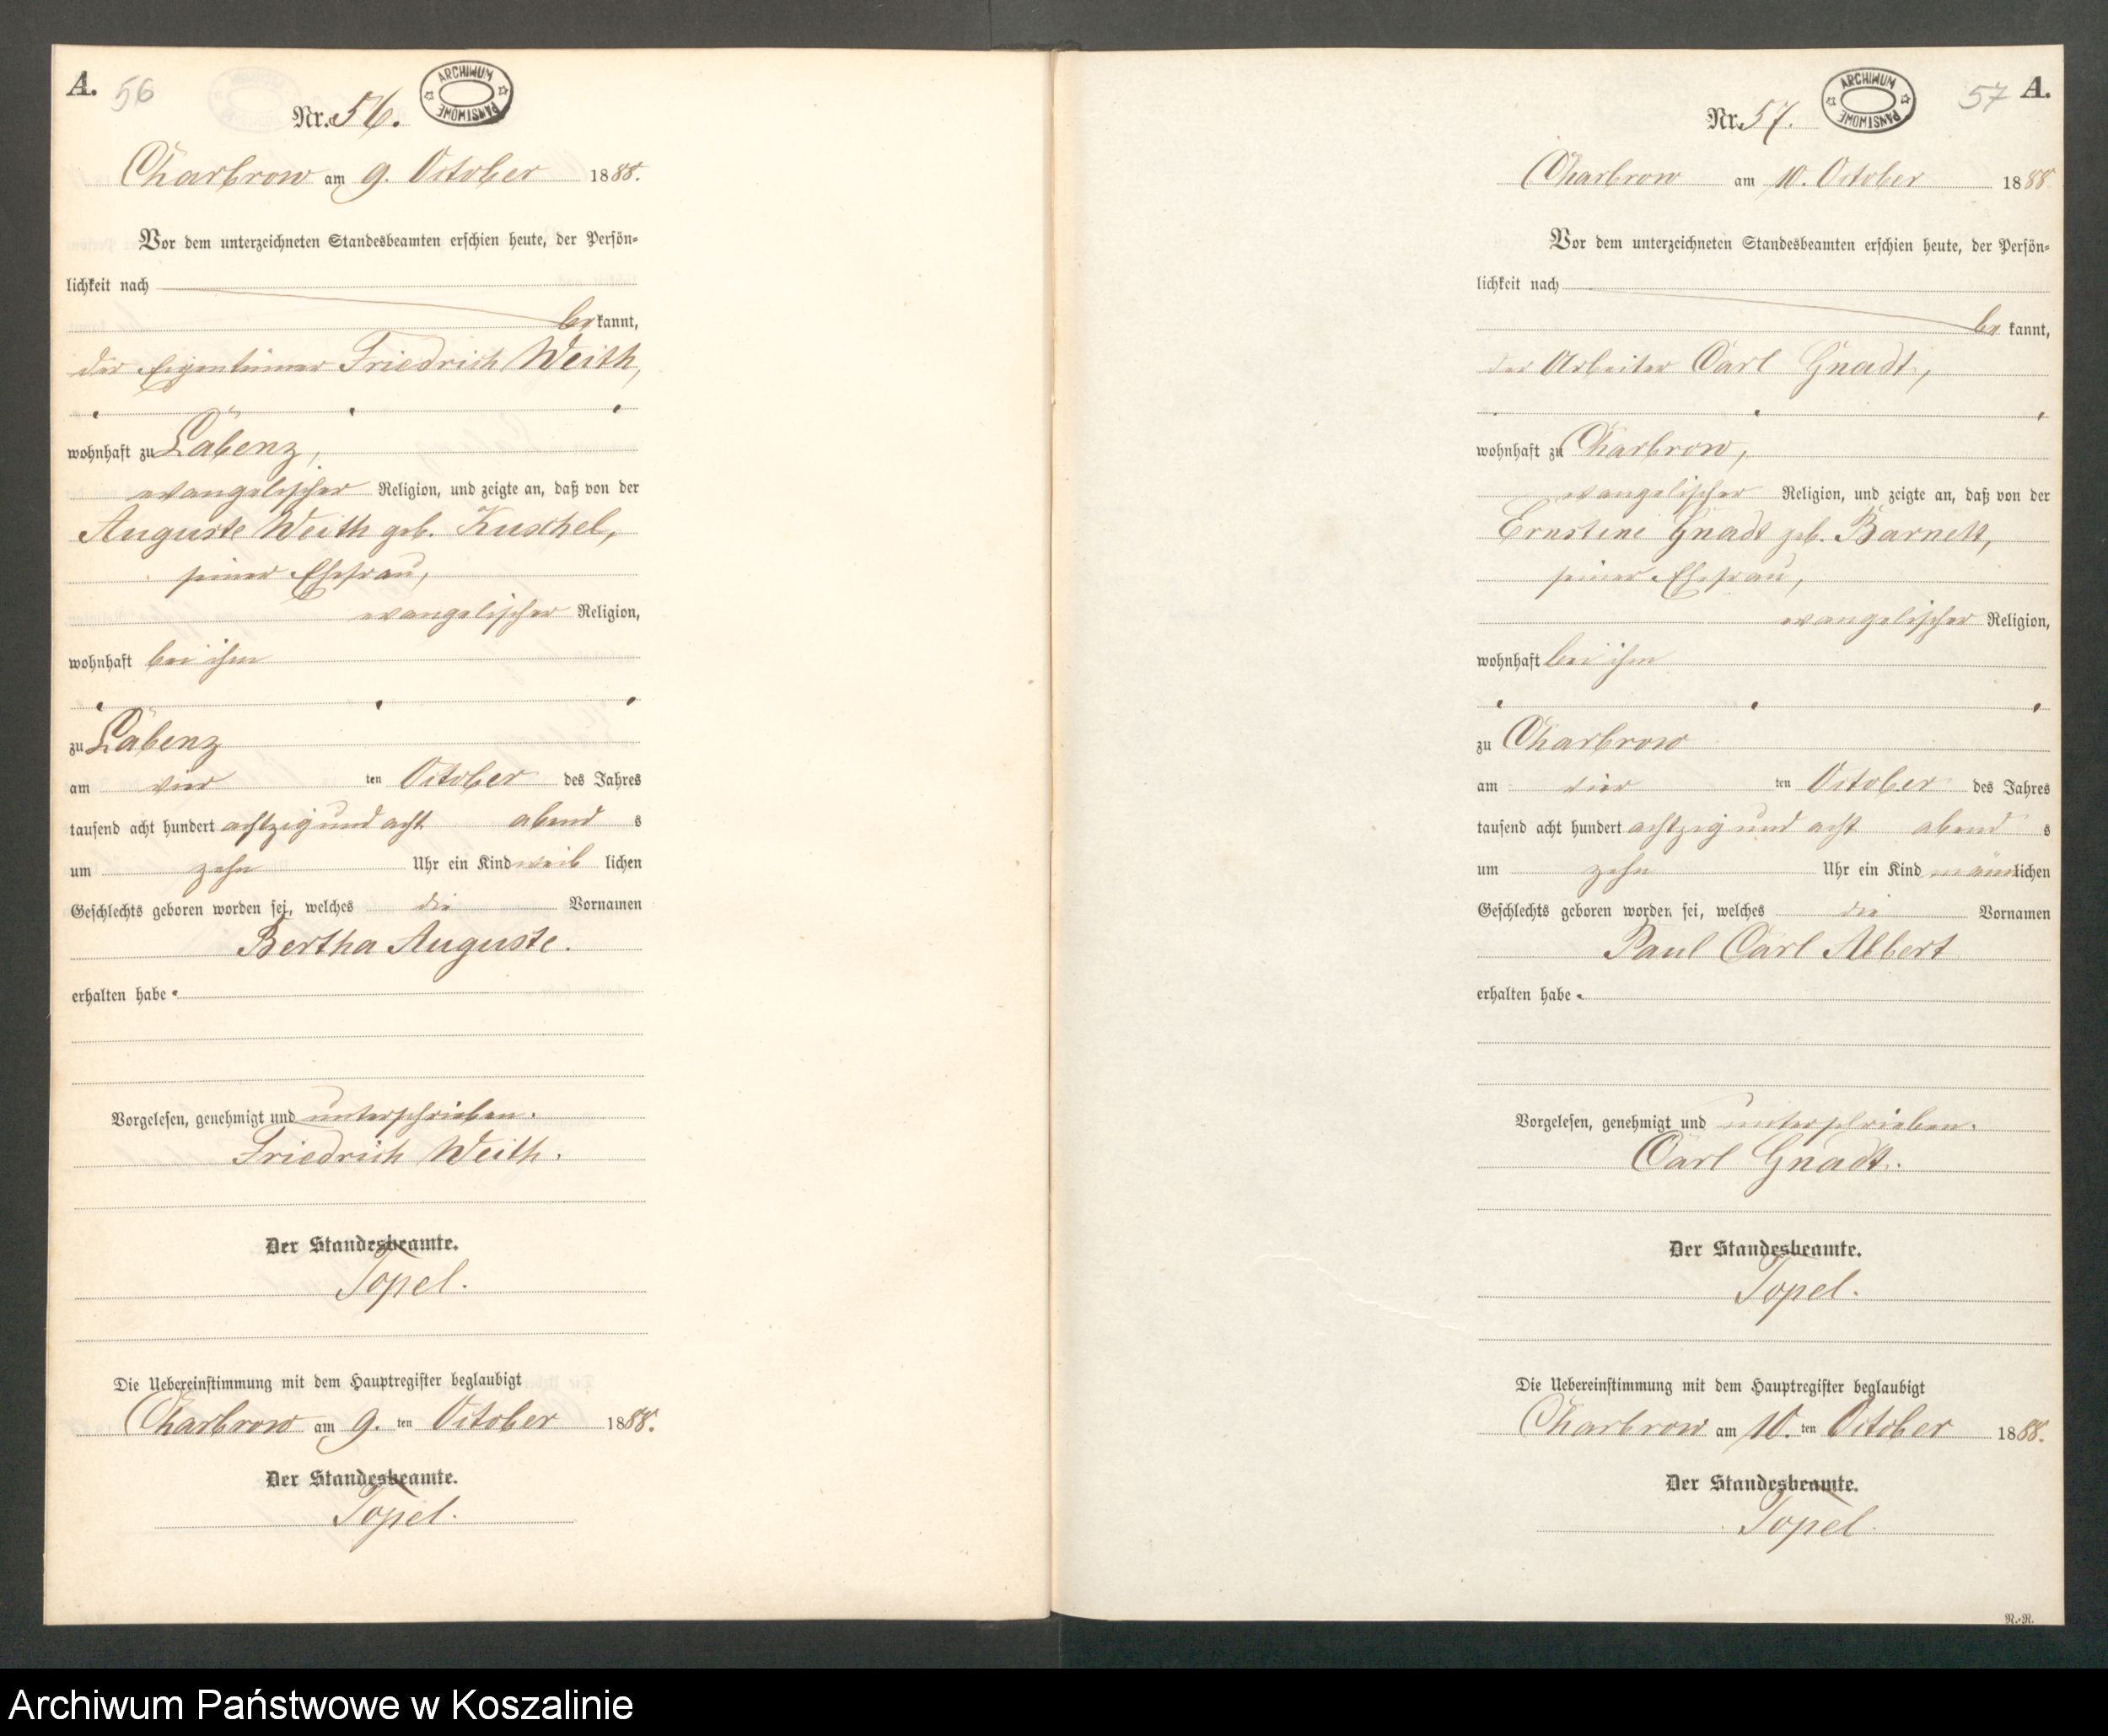 A. 56
ARCHIWUM PAŃSTWOWE
Nr. 56.
Charbrow am 9. October 1888.
Vor dem unterzeichneten Standesbeamten erschien heute, der Persön-
lichkeit nach
be kannt,
der Eigentümer Friedrich Weith,
wohnhaft zu Labenz,
evangelischer Religion, und zeigte an, daß von der
Auguste Weith geb. Kuschel,
seiner Ehefrau,
evangelischer Religion,
wohnhaft bei ihm
zu Labenz
am vier ten October des Jahres
tausend acht hundert achtzig und acht abend s
um zehn Uhr ein Kind weib lichen
Geschlechts geboren worden sei, welches die Vornamen
Bertha Auguste.
erhalten habe.
Vorgelesen, genehmigt und unterschrieben.
Friedrich Weith.
Der Standesbeamte.
Topel.
Die Uebereinstimmung mit dem Hauptregister beglaubigt
Charbrow am 9. ten October 1888.
Der Standesbeamte.
Topel.
57 A.
ARCHIWUM PAŃSTWOWE
Nr. 57.
Charbrow am 10. October 1888
Vor dem unterzeichneten Standesbeamten erschien heute, der Persön-
lichkeit nach
be kannt,
der Arbeiter Carl Gnadt,
wohnhaft zu Charbrow,
evangelischer Religion, und zeigte an, daß von der
Ernstine Gnadt geb. Barnett,
seiner Ehefrau,
evangelischer Religion,
wohnhaft bei ihm
zu Charbrow
am vier ten October des Jahres
tausend acht hundert achtzig und acht abend s
um zehn Uhr ein Kind männlichen
Geschlechts geboren worden sei, welches die Vornamen
Paul Carl Albert
erhalten habe.
Vorgelesen, genehmigt und unterschrieben.
Carl Gnadt.
Der Standesbeamte.
Topel.
Die Uebereinstimmung mit dem Hauptregister beglaubigt
Charbrow am 10. ten October 1888.
Der Standesbeamte.
Topel.
R.-R.
Archiwum Państwowe w Koszalinie